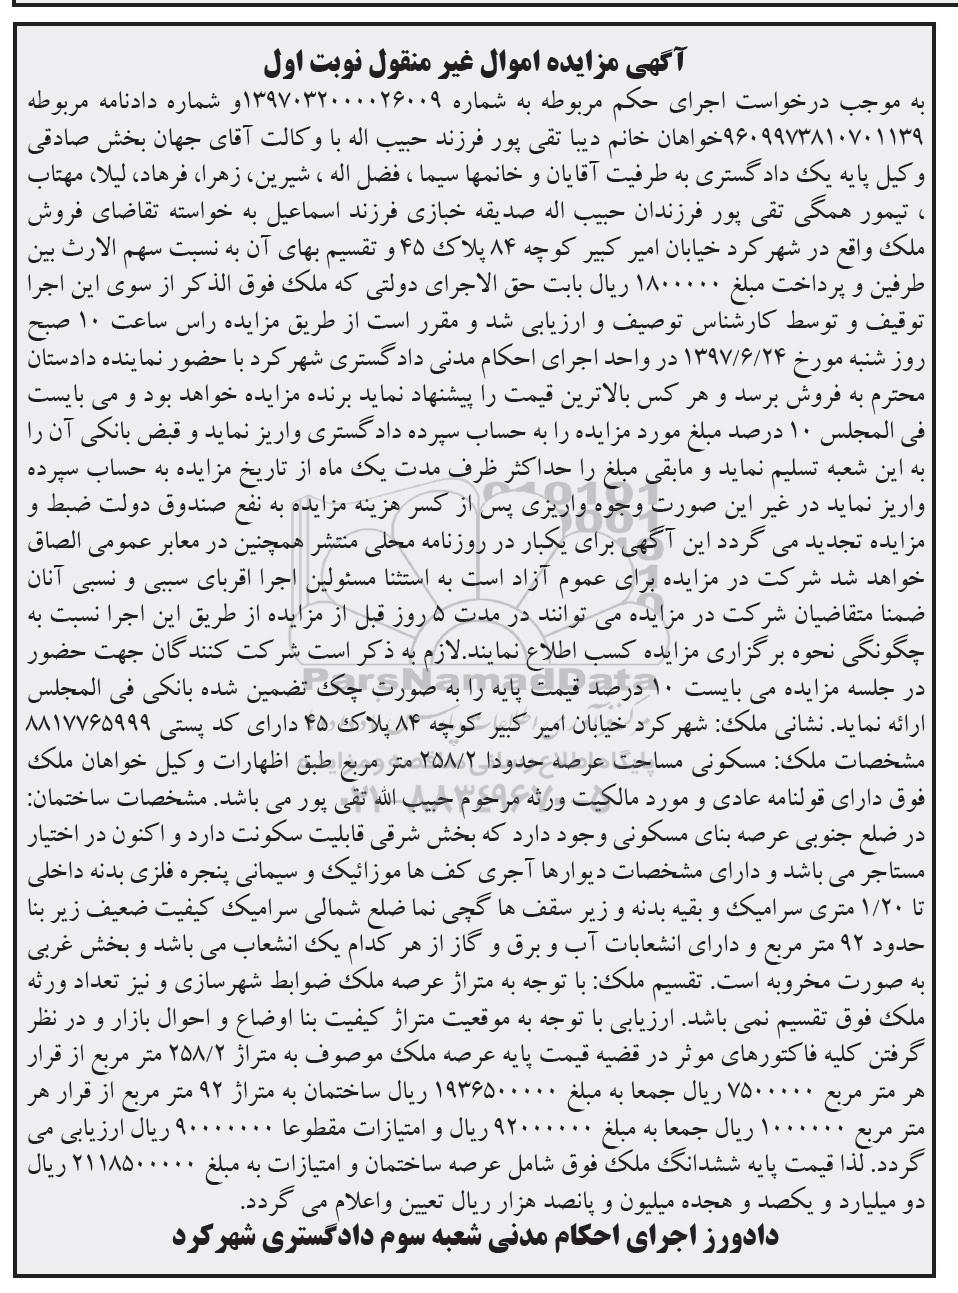 آگهی مزایده اموال غیر منقول نوبت اول
به موجب درخواست اجرای حکم مربوطه به شماره ۱۳۹۷۰۳۲۰۰۰۰۲۶۰۰۹و شماره دادنامه مربوطه
۹۶۰۹۹۷۳۸۱۰۷۰۱۱۳۹خواهان خانم دیبا تقی پور فرزند حبیب اله با وکالت آقای جهان بخش صادقی
وکیل پایه یک دادگستری به طرفیت آقایان و خانمها سیما ، فضل اله ، شیرین، زهرا، فرهاد، لیلا، مهتاب
، تیمور همگی تقی پور فرزندان حبیب اله صدیقه خبازی فرزند اسماعیل به خواسته تقاضای فروش
ملک واقع در شهرکرد خیابان امیر کبیر کوچه ۸۴ پلاک ۴۵ و تقسیم بهای آن به نسبت سهم الارث بین
طرفین و پرداخت مبلغ ۱۸۰۰۰۰۰ ریال بابت حق الاجرای دولتی که ملک فوق الذکر از سوی این اجرا
توقیف و توسط کارشناس توصیف و ارزیابی شد و مقرر است از طریق مزایده راس ساعت ۱۰ صبح
روز شنبه مورخ ۱۳۹۷/۶/۲۴ در واحد اجرای احکام مدنی دادگستری شهرکرد با حضور نماینده دادستان
محترم به فروش برسد و هر کس بالاترین قیمت را پیشنهاد نماید برنده مزایده خواهد بود و می بایست
فی المجلس ۱۰ درصد مبلغ مورد مزایده را به حساب سپرده دادگستری واریز نماید و قبض بانکی آن را
به این شعبه تسلیم نماید و مابقی مبلغ را حداکثر ظرف مدت یک ماه از تاریخ مزایده به حساب سپرده
واریز نماید در غیر این صورت وجوه واریزی پس از کسر هزینه مزایده به نفع صندوق دولت ضبط و
مزایده تجدید می گردد این آگهی برای یکبار در روزنامه محلی منتشر همچنین در معابر عمومی الصاق
خواهد شد شرکت در مزایده برای عموم آزاد است به استثنا مسئولین اجرا اقربای سببی و نسبی آنان
ضمنا متقاضیان شرکت در مزایده می توانند در مدت ۵ روز قبل از مزایده از طریق این اجرا نسبت به
چگونگی نحوه برگزاری مزایده کسب اطلاع نمایند.لازم به ذکر است شرکت کنندگان جهت حضور
ParsNamadData
در جلسه مزایده می بایست ۱۰ درصد قیمت پایه را به صورت چک تضمین شده بانکی فی المجلس
ارائه نماید. نشانی ملک: شهرکرد خیابان امیر کبیر کوچه ۸۴ پلاک ۴۵ دارای کد پستی ۸۸۱۷۷۶۵۹۹۹
مشخصات ملک: مسکونی مساحت عرصه حدودا ۲۵۸/۲ متر مربع طبق اظهارات وکیل خواهان ملک
فوق دارای قولنامه عادی و مورد مالکیت ورثه مرحوم حبیب الله تقی پور می باشد. مشخصات ساختمان:
در ضلع جنوبی عرصه بنای مسکونی وجود دارد که بخش شرقی قابلیت سکونت دارد و اکنون در اختیار
مستاجر می باشد و دارای مشخصات دیوارها آجری کف ها موزائیک و سیمانی پنجره فلزی بدنه داخلی
تا ۱/۲۰ متری سرامیک و بقیه بدنه و زیر سقف ها گچی نما ضلع شمالی سرامیک کیفیت ضعیف زیر بنا
حدود ۹۲ متر مربع و دارای انشعابات آب و برق و گاز از هر کدام یک انشعاب می باشد و بخش غربی
به صورت مخروبه است. تقسیم ملک: با توجه به متراژ عرصه ملک ضوابط شهرسازی و نیز تعداد ورثه
ملک فوق تقسیم نمی باشد. ارزیابی با توجه به موقعیت متراژ کیفیت بنا اوضاع و احوال بازار و در نظر
گرفتن کلیه فاکتورهای موثر در قضیه قیمت پایه عرصه ملک موصوف به متراژ ۲۵۸/۲ متر مربع از قرار
هر متر مربع ۷۵۰۰۰۰۰ ریال جمعا به مبلغ ۱۹۳۶۵۰۰۰۰۰ ریال ساختمان به متراژ ۹۲ متر مربع از قرار هر
متر مربع ۱۰۰۰۰۰۰ ریال جمعا به مبلغ ۹۲۰۰۰۰۰۰ ریال و امتیازات مقطوعا ۹۰۰۰۰۰۰۰ ریال ارزیابی می
گردد. لذا قیمت پایه ششدانگ ملک فوق شامل عرصه ساختمان و امتیازات به مبلغ ۲۱۱۸۵۰۰۰۰۰ ریال
دو میلیارد و یکصد و هجده میلیون و پانصد هزار ریال تعیین واعلام می گردد.
دادورز اجرای احکام مدنی شعبه سوم دادگستری شهرکرد